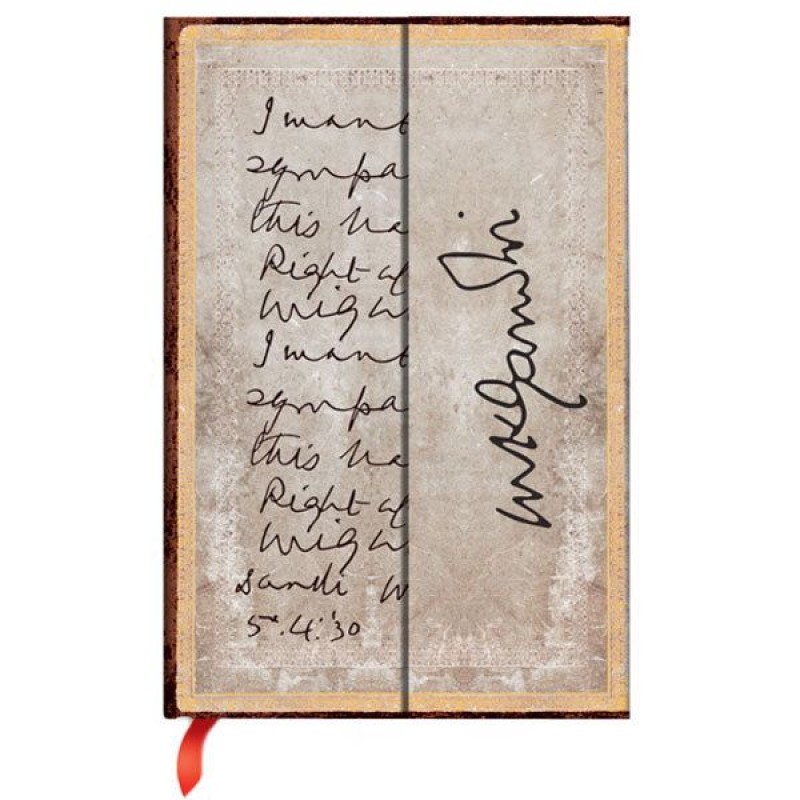 I want
sympa
this ba
Right of
Migh
I want
sympa
this ba
Right of
Migh
Dandi M
5.4.'30
MKGandhi